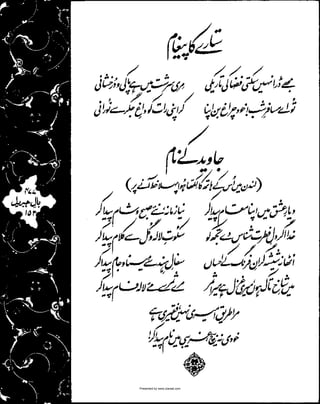 ستارے کا پیغام
مجھے ڈرا نہیں سکتی فضا کی تاریکی
مری سرشت میں ہے پاکی و درخشانی
تو اے مسافر شب! خود چراغ بن اپنا
کر اپنی رات کو داغ جگر سے نورانی
جاوید کے نام
(لندن میں اس کے ہاتھ کا لکھا ہوا پہلا خط آنے پر)
دیار عشق میں اپنا مقام پیدا کر
نیا زمانہ نئے صبح و شام پیدا کر
خدا اگر دل فطرت شناس دے تجھ کو
سکوت لالہ و گل سے کلام پیدا کر
اٹھا نہ شیشہ گران فرنگ کے احساں
سفال ہند سے مینا و جام پیدا کر
میں شاخ تاک ہوں میری غزل ہے میرا ثمر
مرے ثمر سے مے لالہ فام پیدا کر
مرا طریق امیری نہیں فقیری ہے
خودی نہ بیچ غریبی میں نام پیدا کر
بال جبریل
Presented by www.ziaraat.com